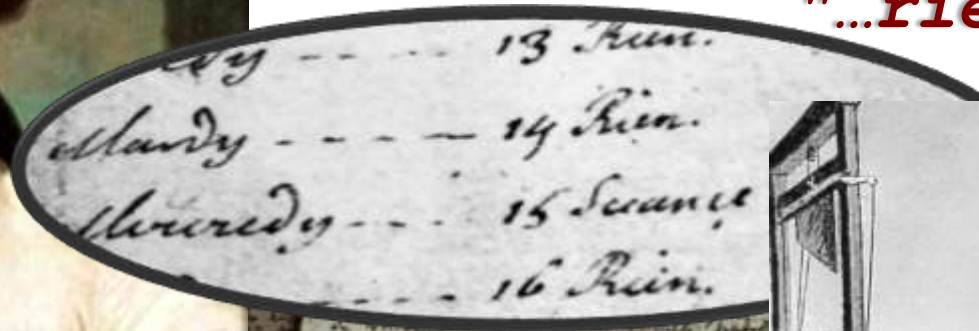 "...rie
dy ---- 13 Rien.
Mardy ----- 14 Rien.
Mercredy --- 15 Seance
---- 16 Rien.